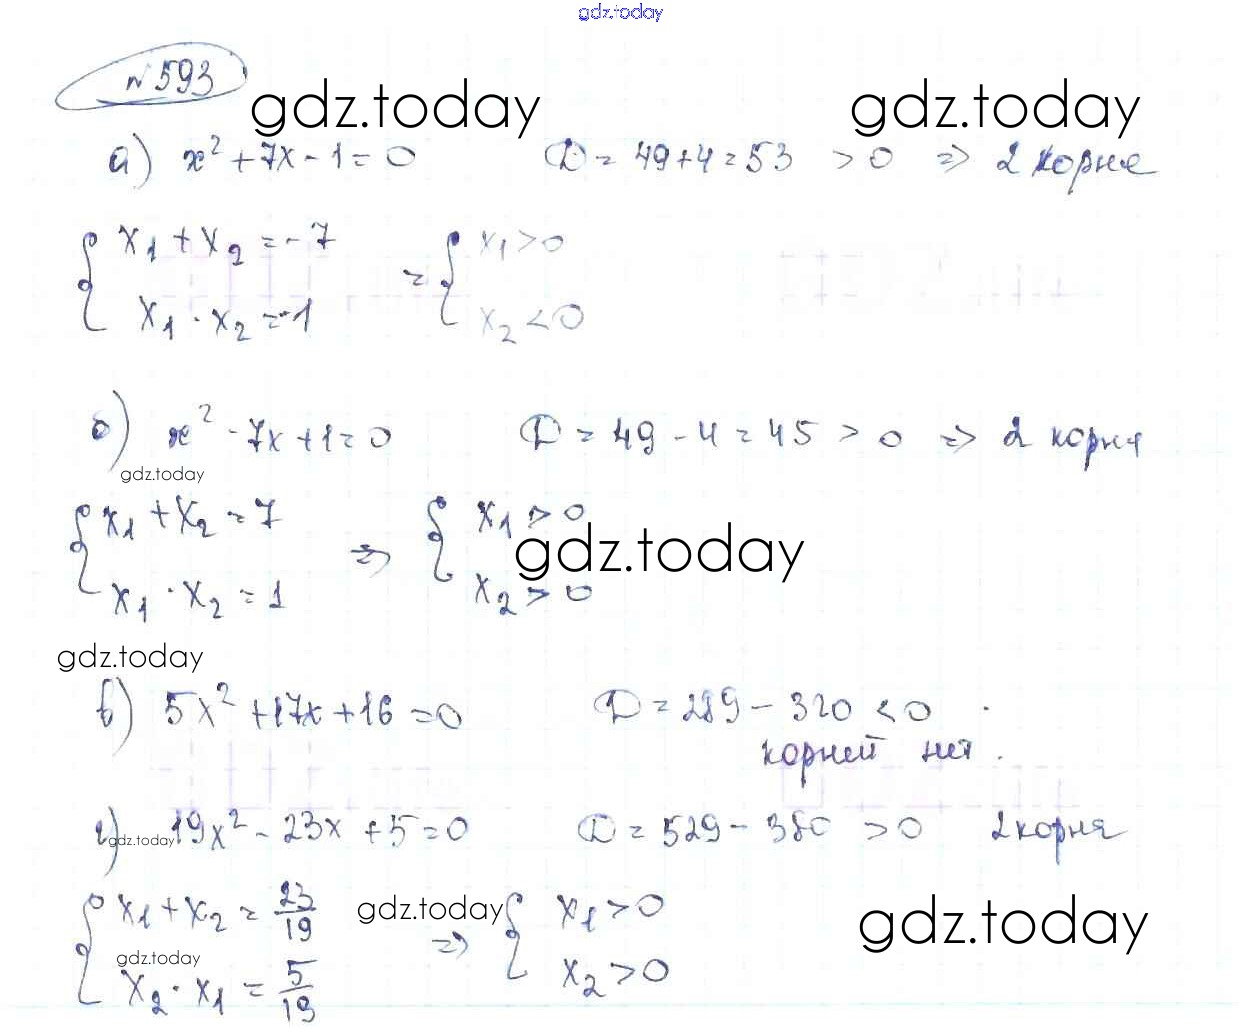 gdz.today
№593
gdz.today gdz.today
а) x² + 7x - 1 = 0 D = 49 + 4 = 53 > 0 => 2 корня
{ x₁ + x₂ = -7 = { x₁ > 0
x₁ · x₂ = -1 x₂ < 0
б) x² - 7x + 1 = 0 D = 49 - 4 = 45 > 0 => 2 корня
gdz.today
{ x₁ + x₂ = 7 => { x₁ > 0
gdz.today
x₁ · x₂ = 1 x₂ > 0
gdz.today
в) 5x² + 17x + 16 = 0 D = 289 - 320 < 0 .
корней нет.
г) 19x² - 23x + 5 = 0 D = 529 - 380 > 0 2 корня
gdz.today
{ x₁ + x₂ = 23/19 => { x₁ > 0
gdz.today gdz.today
gdz.today
x₂ · x₁ = 5/19 x₂ > 0